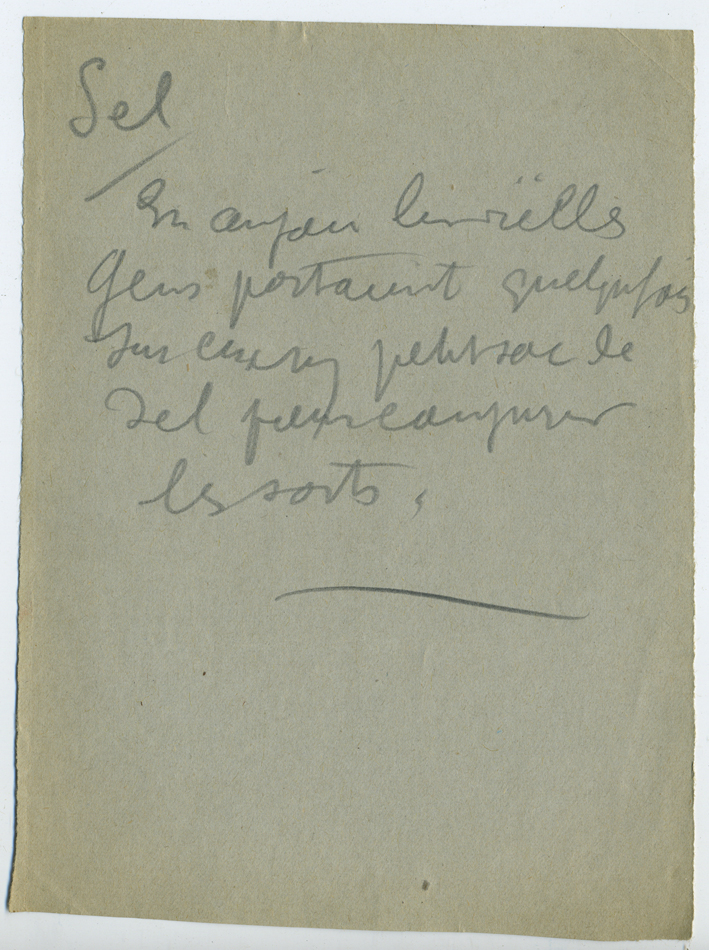 Sel
En anjou les viëlles
Gens portaient quelqufois
sur eux un petit sac de
sel pour conjurer
les sorts,